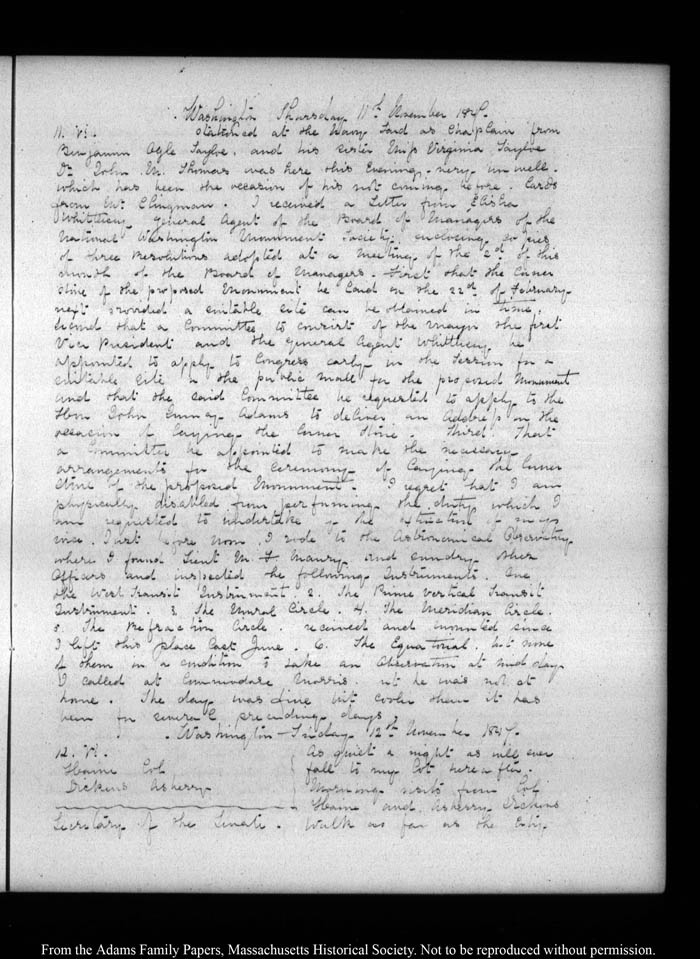 Washington Thursday 11th November 1847.
11. VI. stationed at the Navy Yard as Chaplain from
Benjamin Ogle Tayloe, and his sister Miss Virginia Tayloe
Dr John M. Thomas was here this Evening, very unwell.
which has been the occasion of his not coming before. Cards
from Mr Clingman. I received a Letter from Elisha
Whittlesey, general Agent of the Board of Managers of the
National Washington Monument Society, enclosing copies
of three Resolutions adopted at a Meeting of the 2d of this
month of the Board of Managers. First that the Corner
stone of the proposed Monument be laid on the 22d of February
next provided a suitable site can be obtained in time,
second that a Committee to consist of the mayor the first
Vice President and the general Agent Whittlesey, be
appointed to apply to Congress early in the Session for a
suitable site in the public mall for the proposed Monument
and that the said Committee be requested to apply to the
Hon John Quincy Adams to deliver an Address on the
occasion of laying the Corner stone. Third. That
a Committee be appointed to make the necessary
arrangements for the ceremony of laying the Corner
stone of the proposed Monument. I regret that I am
physically disabled from performing the duty which I
am requested to undertake by the of my
voice. Just before Noon, I rode to the Astronomical Observatory
where I found Lieut M. F Maury, and sundry other
Officers and inspected the following Instruments. One
the West Transit Instrument. 2. The Prime Vertical Transit
Instrument. 3. The Mural Circle. 4. The Meridian Circle.
5. The Refraction Circle. received and mounted since
I left this place last June. 6. The Equatorial, but none
of them in a condition to take an Observation at mid day
I called at Commodore Morris. but he was not at
home. The day was fine but cooler than it has
been for several preceding days.
Washington Friday 12th November 1847.
12. VI. As quiet a night as will ever
Hoame Col fall to my lot hereafter.
Dickins Asbury Morning visits from Col
Hoame and Asbury Dickins
Secretary of the Senate. Walk as far as the City
From the Adams Family Papers, Massachusetts Historical Society. Not to be reproduced without permission.